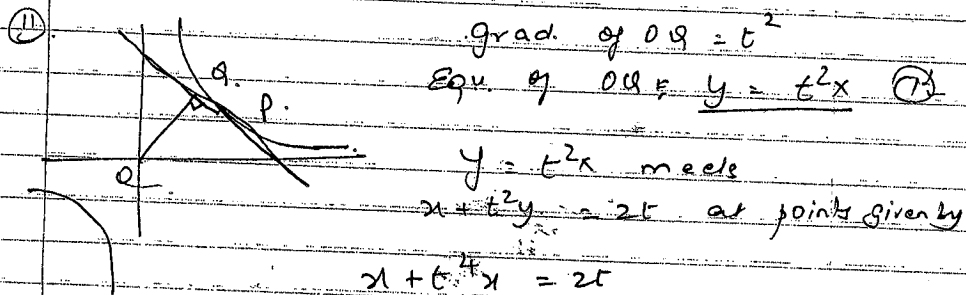 11
grad. of OQ = t²
Equ. of OQ : y = t²x
Q.
P.
O
y = t²x meets
x + t²y = 2t at points given by
x + t⁴x = 2t